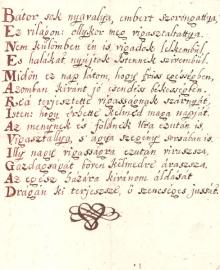 Bátor sok nyavalya, embert szorongattya,
Ez világon: ollykor meg vigasztaltattya.
Nem külömben én is vigadok lelkemből
És hálákat nyújtok Istennek szívemből.
Midőn ez nap látom, hogy friss egésségben,
Azomban kiránt jó csendess békességben.
Reá terjesztette vigasságnak szárnyát,
Isten: hogy érhette Kelmed maga napját.
Az menynek és földnek Ura ezután is,
Vigasztallya, s' ágya szegény sorsában is.
Illy nagy vigasságra ezután virassza,
Gazdagságát bőven Kelmedre árassza,
Az egész házára kivánom áldását
Drágán ki terjessze, ő szentséges jussát.